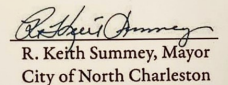 R. Keith Summey
R. Keith Summey, Mayor
City of North Charleston